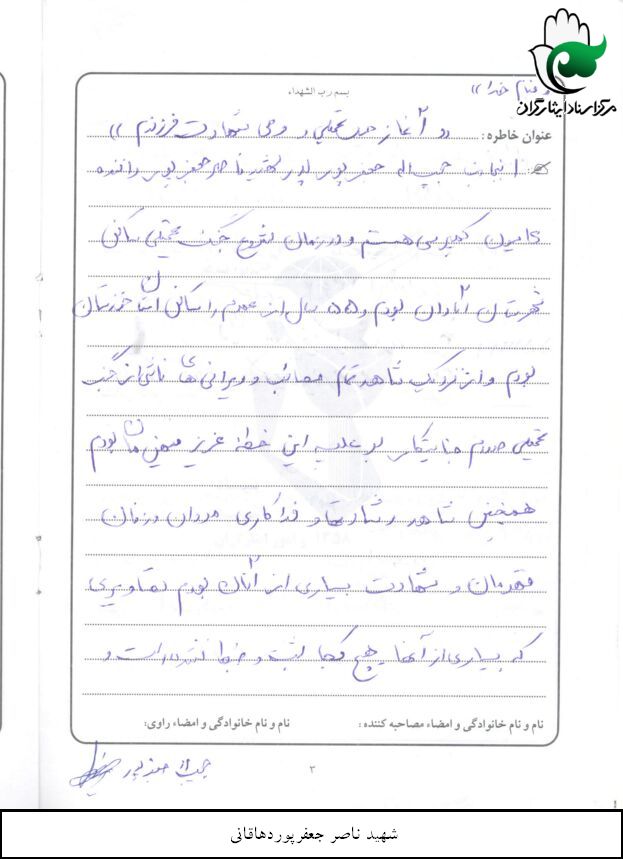 بسم رب الشهداء
بنام خدا »
مرکز اسناد ایثارگران
عنوان خاطره : « آغاز جنگ تحمیلی و شهادت فرزندم »
اینجانب حبیب اله جعفر پور پدر شهید ناصر جعفر پور راننده
کامیون کمپرسی هستم و در زمان شروع جنگ تحمیلی ساکن
شهرستان آبادان بودم و ۵۵ سال از عمرم را ساکن استان خوزستان
بودم و از نزدیک شاهد تمام مصائب و ویرانی های ناشی از جنگ
تحمیلی صدام جنایتکار بر علیه این خطهٔ عزیز میهن مان بودم
همچنین شاهد رشادتها و فداکاری مردان و زنان
قهرمان و شهادت بسیاری از آنان بودم تصاویری
که بسیاری از آنها هیچ کجا ثبت و ضبط نشده است و
نام و نام خانوادگی و امضاء مصاحبه کننده :
نام و نام خانوادگی و امضاء راوی:
حبیب اله جعفر پور
۳
شهید ناصر جعفرپوردهاقانی